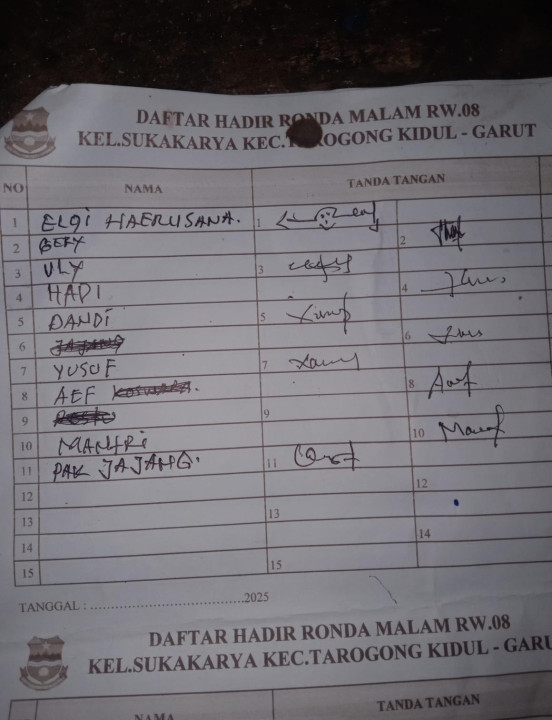 DAFTAR HADIR RONDA MALAM RW.08
KEL.SUKAKARYA KEC.TAROGONG KIDUL - GARUT
NO NAMA TANDA TANGAN
1 ELGI HAERUSANA. 1
2 BERY 2
3 ULY 3
4 HADI 4
5 DANDI 5
6 JAJANG 6
7 YUSUF 7
8 AEF 8
9 9
10 MANTRI 10
11 PAK JAJANG. 11
12 12
13 13
14 14
15 15
TANGGAL : ..........................................2025
DAFTAR HADIR RONDA MALAM RW.08
KEL.SUKAKARYA KEC.TAROGONG KIDUL - GARU
NAMA TANDA TANGAN